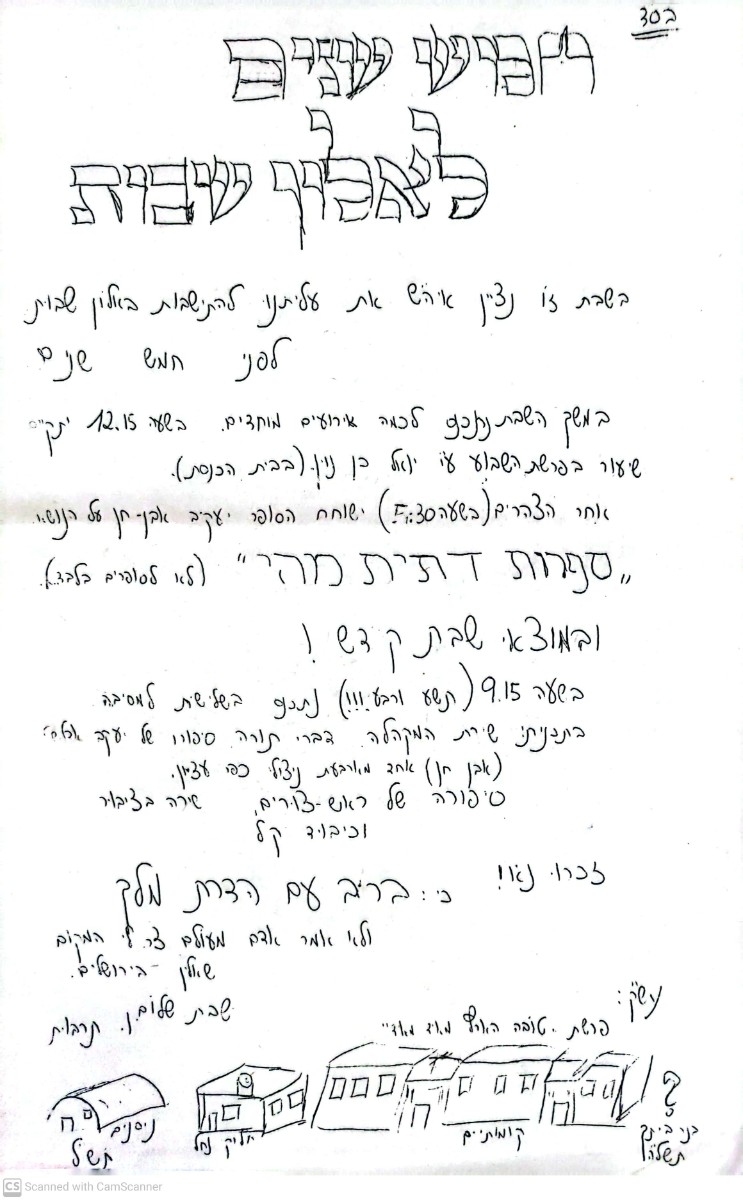 בס"ד
חמש שנים
לאלון שבות
בשבת זו נציין אי"ה את עליתנו להתישבות באלון שבות
לפני חמש שנים
במשך השבת נתכנס לכמה אירועים מיוחדים. בשעה 12.15 יתקיים
שיעור בפרשת השבוע ע"י יואל בן נון. (בבית הכנסת).
אחר הצהרים (בשעה 5:30) ישוחח הסופר יעקב אבן-חן על הנושא
"ספרות דתית מהי" (לא לסופרים בלבד).
ובמוצאי שבת קדש !
בשעה 9.15 (תשע ורבע!!!) נתכנס בשלישית למסיבה
בתכנית: שירת המקהלה דברי תורה סיפורו של יעקב
(אבן חן) אחד מארבעת ניצולי כפר עציון.
סיפורה של ראש-צורים, שירה בציבור
וכיבוד קל
זכרו נא! כי: ברוב עם הדרת מלך
ולא אמר אדם מעולם צר לי המקום
שאלין בירושלים.
שבת שלום ו. תרבות
עש"ק:
פרשת "טובה הארץ מאד מאד"
ניסנים
תש"ל
חליק נחל
קומתיים
בני ביתך
תשל"ה
CS Scanned with CamScanner